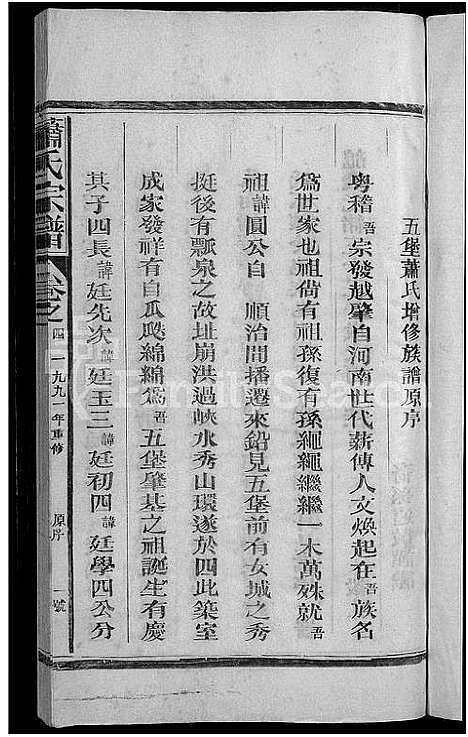 五堡蕭氏增修族譜原序
粵稽吾宗發越肇自河南世代薪傳人文煥起在吾族名
為世家也祖尙有祖孫復有孫繩繩繼繼一木萬殊就吾
祖諱圓公自 順治間播遷來鉛見五堡前有女城之秀
挺後有瓢泉之故址崩洪過峽水秀山環遂於四此築室
成家發祥有自瓜瓞綿綿為吾五堡肇基之祖誕生有慶
其子四長諱廷先次諱廷玉三諱廷初四諱廷學四公分
蕭氏宗譜 卷之四 一九九一年重修 原序 一號
FamilySearch